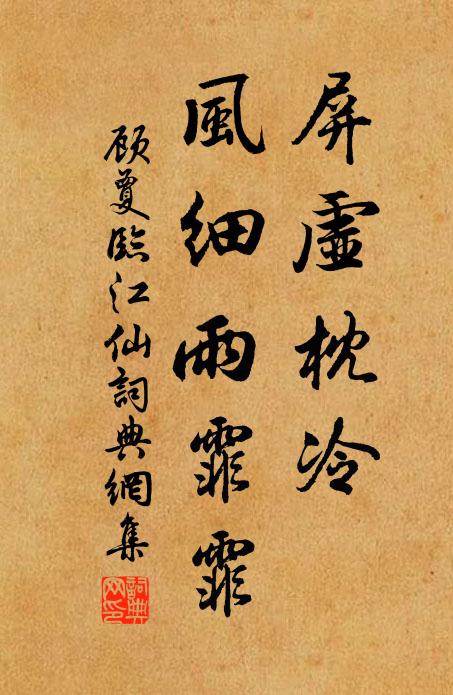 屏虛枕冷
風細雨霏霏
顧夐臨江仙詞典網集
詞典網印